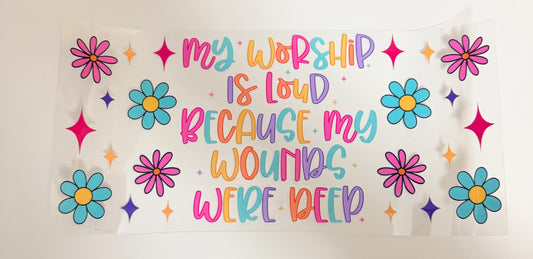 MY WORSHIP
IS LOUD
BECAUSE MY
WOUNDS
WERE DEEP